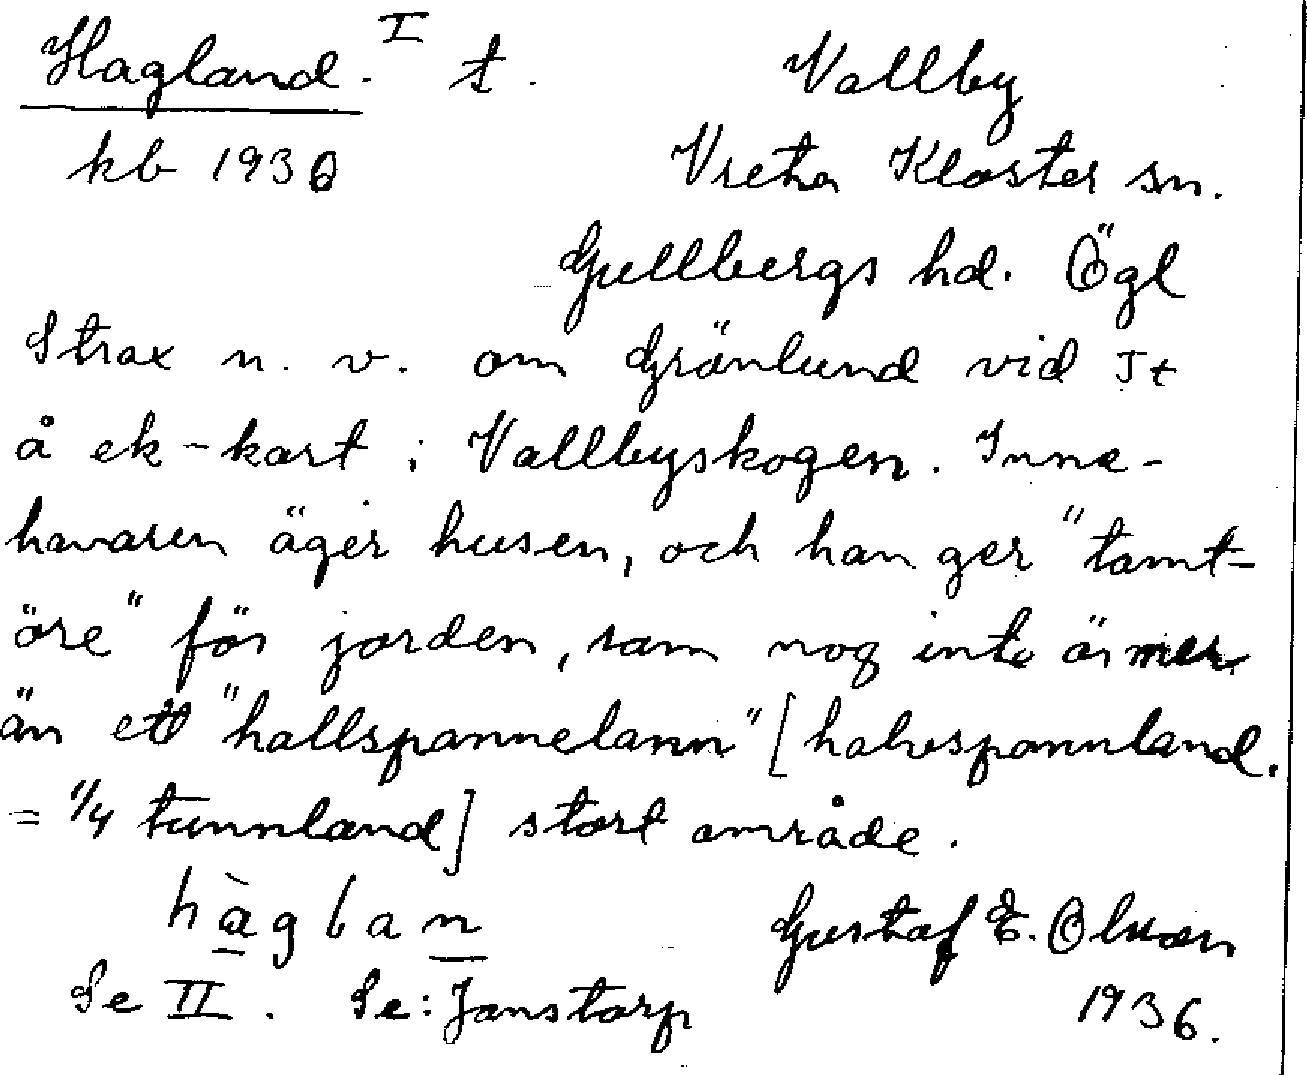 Hagland. I t. Vallby
kb 1930 Vreta Kloster sn.
Gullbergs hd. Ögl
Strax n. v. om Grönlund vid It
å ek-kart i Vallbyskogen. Inne-
havaren äger husen, och han ger "tomt-
öre" för jorden, som nog inte är mer
än ett "hallspannelann" [halvspannland.
= 1/4 tunnland] stort område.
hàglan Gustaf E. Olsson
Se II. Se: Jonstorp 1936.